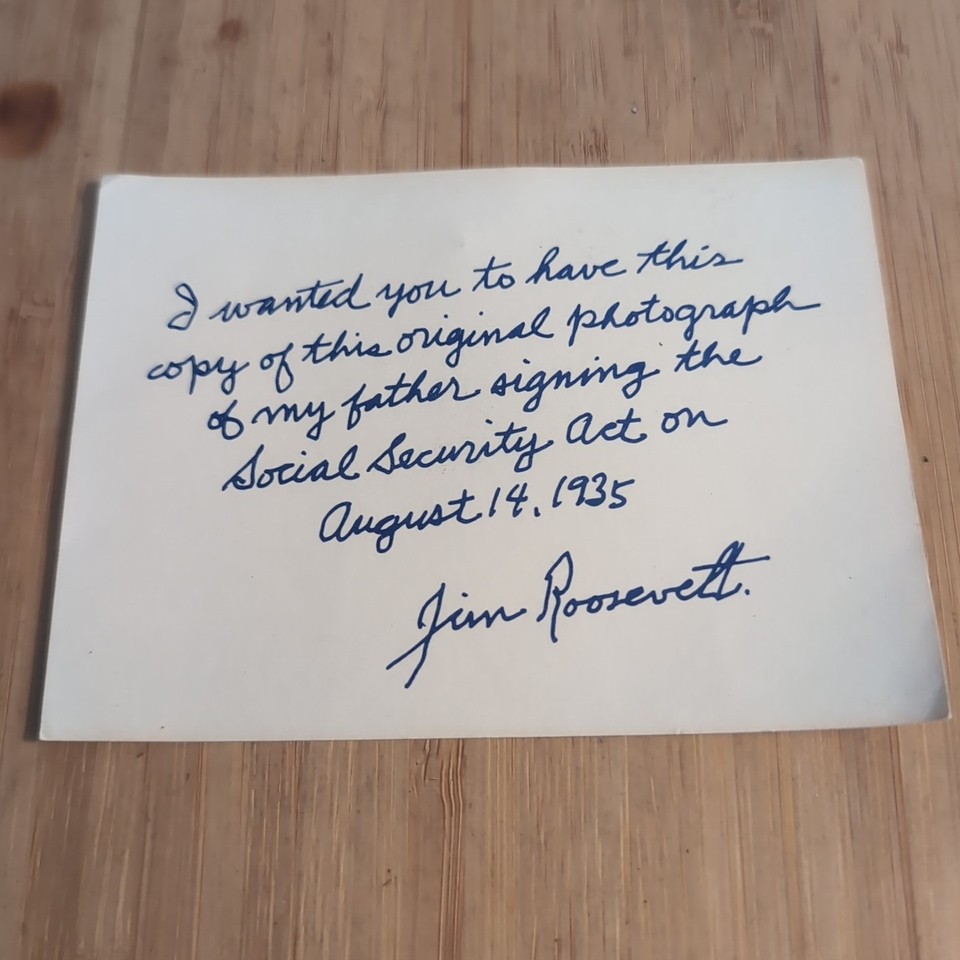 I wanted you to have this
copy of this original photograph
of my father signing the
Social Security Act on
August 14, 1935
Jim Roosevelt.